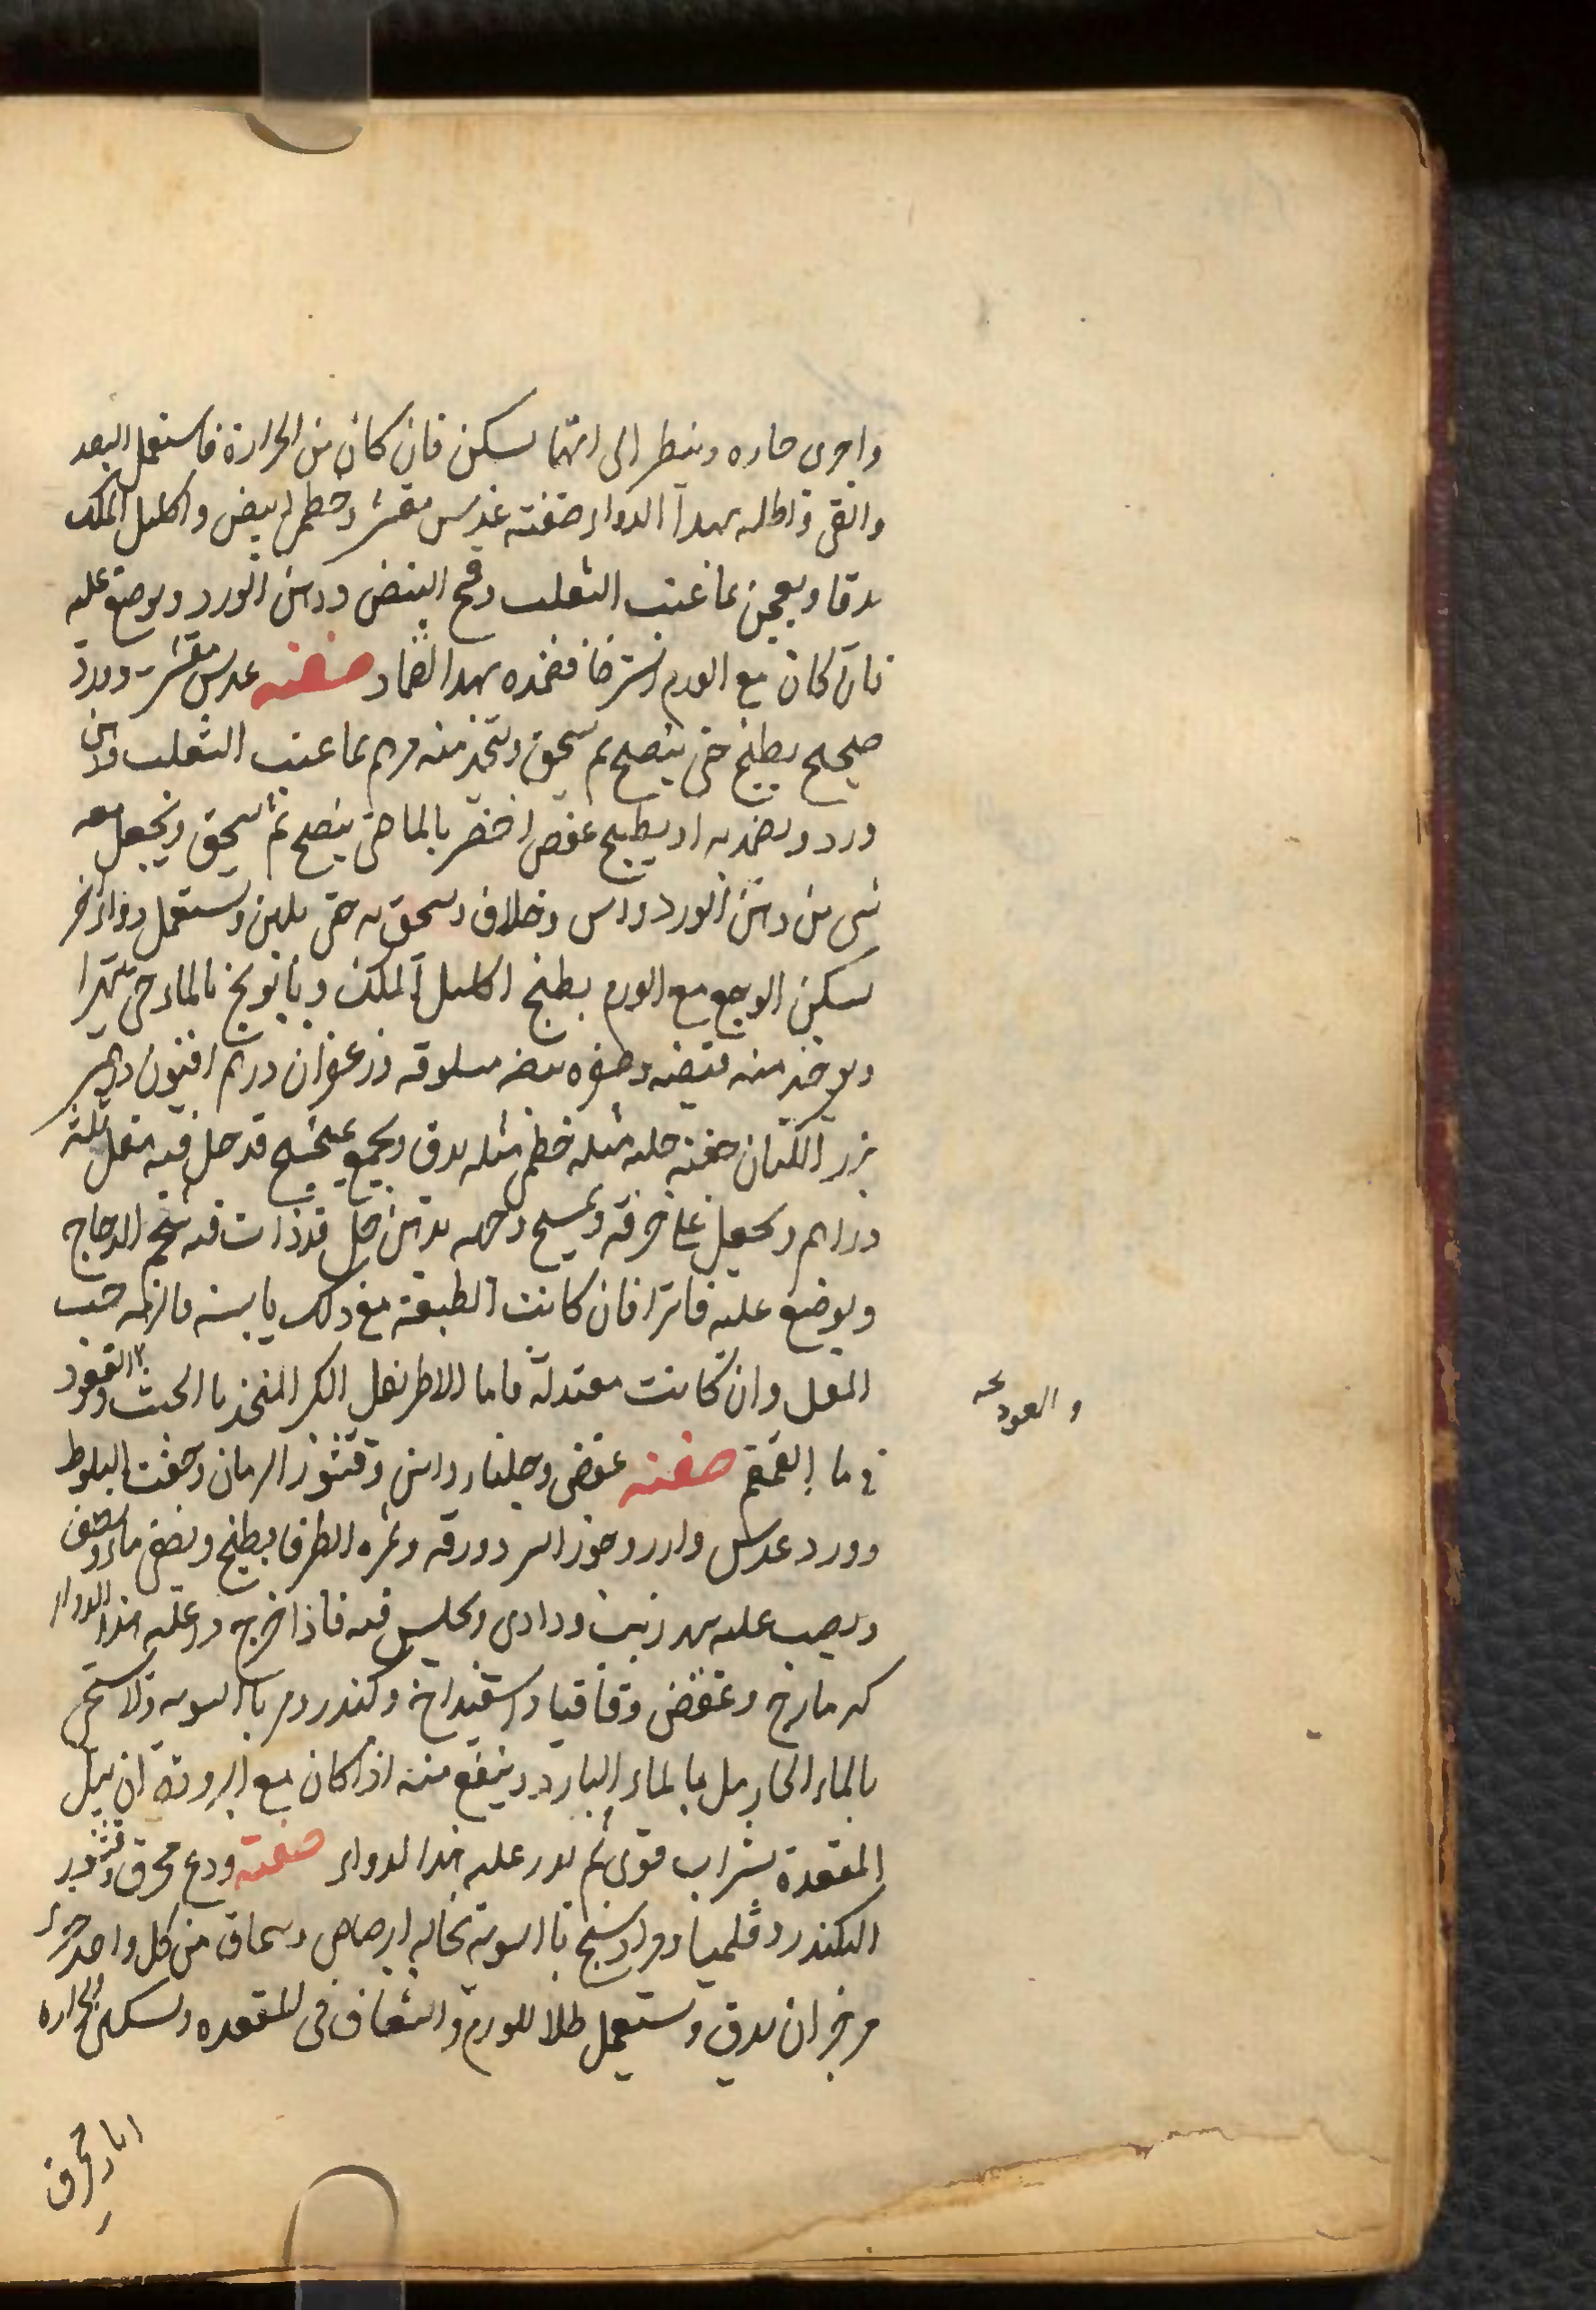 واخرى حاره وينظر الى ايهما يسكن فان كان من الحرارة فاستعمل البعد
والقى واطله بهدا الدواء صفته عدس مقشر وخطمى ابيض واكليل الملك
يدقا ويعجن بما عنب الثعلب ومح البيض ودهن الورد ويوضع عليه
فان كان مع الورم استرخا فضمده بهدا الضماد صفته عدس مقشر وورد
صحيح يطبخ حتى ينضج ثم يسحق ويتخذ منه مرهم بما عنب الثعلب ودهن
ورد ويضمد به او يطبخ عفص اخضر بالما حتى ينضج ثم يسحق ويجعل معه
شى من دهن الورد واس وخلاف ويسحق به حتى يلين ويستعمل دواء اخر
يسكن الوجع مع الورم يطبخ اكليل الملك وبابونج بالماء حتى يتهرا
ويوخذ منه قبضه وصفره بيضه مسلوقه زعفران درهم افيون درهم
بزر الكتان حفنه حلبه مثله خطمى مثله يدق ويجمع بميبختج قد حل فيه مقل ثلثه
دراهم ويجعل على خرقه ويمسح وجهه بدهن حل قد ذاب فيه شحم الدجاج
ويوضع عليه فاترا فان كانت الطبيعة مع ذلك يابسه فالزمه حب
المقل وان كانت معتدلة فاما الاطريفل الكبر المتخذ بالخبث والقعود
فى ما القمقم صفته عفص وجلنار واس وقشور الرمان وجفت البلوط
وورد عدس وارز وجوز السرو ورقه وثمره الطرفا يطبخ ويصفى ماءه
ويصب عليه زيت ودادى ويجلس فيه فاذا خرج ذر عليه هذا الدواء
كزمازج وعفص وقاقيا واسفيداج وكندر ومر بالسويه ولا يستحم
بالماء الحار بل بالماء البارد وينفع منه اذا كان مع البرودة ان يبل
المقعدة بشراب قوى ثم يدر عليه هذا لدواء صفته ودع محرق وقشور
الكندر وقليميا ومرداسنج بالسوية نخاله الرصاص وسماق من كل واحد جزء
مر جزان يدق ويستعمل طلا للورم والشقاق فى المقعده وتسكين الحراره
ابار محرق